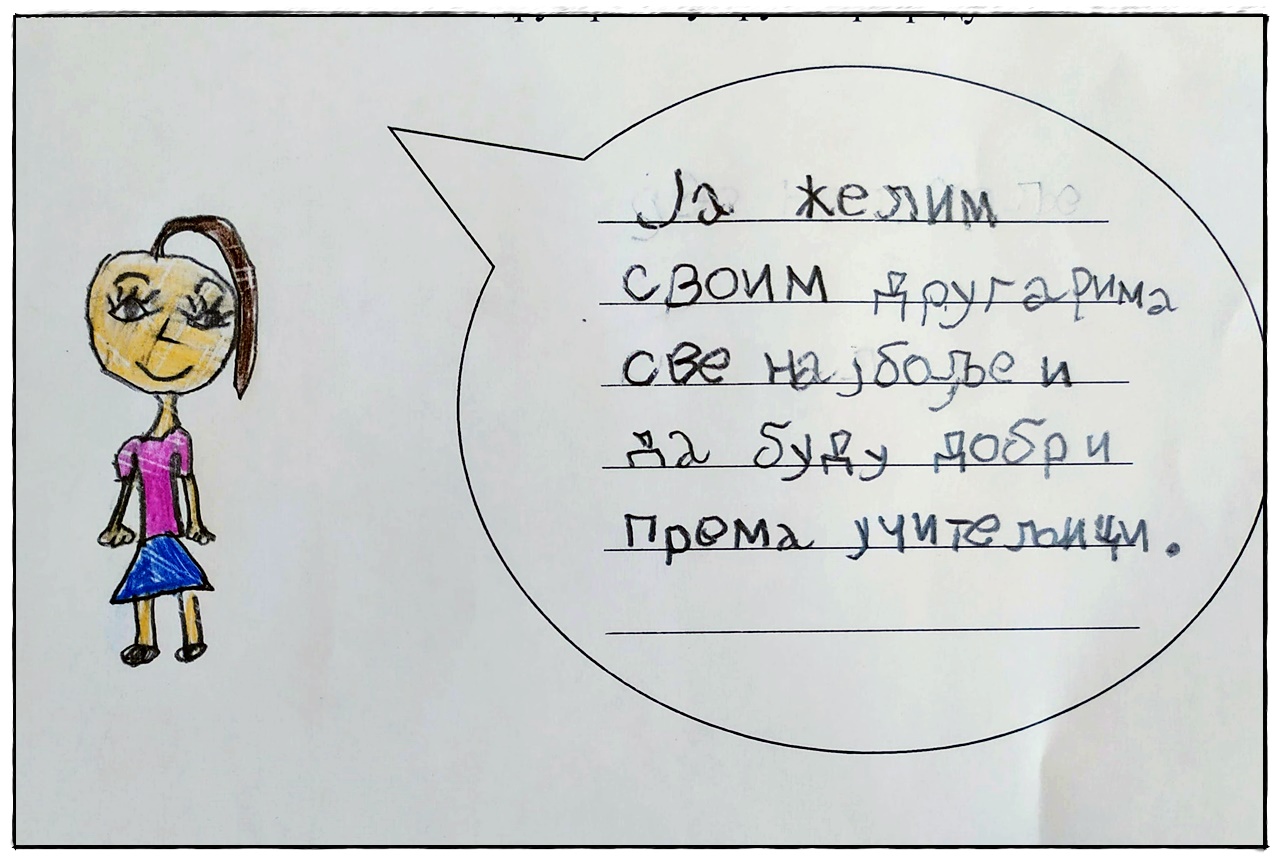 Ја желим
своим другарима
све најбоље и
да буду добри
према учитељици.